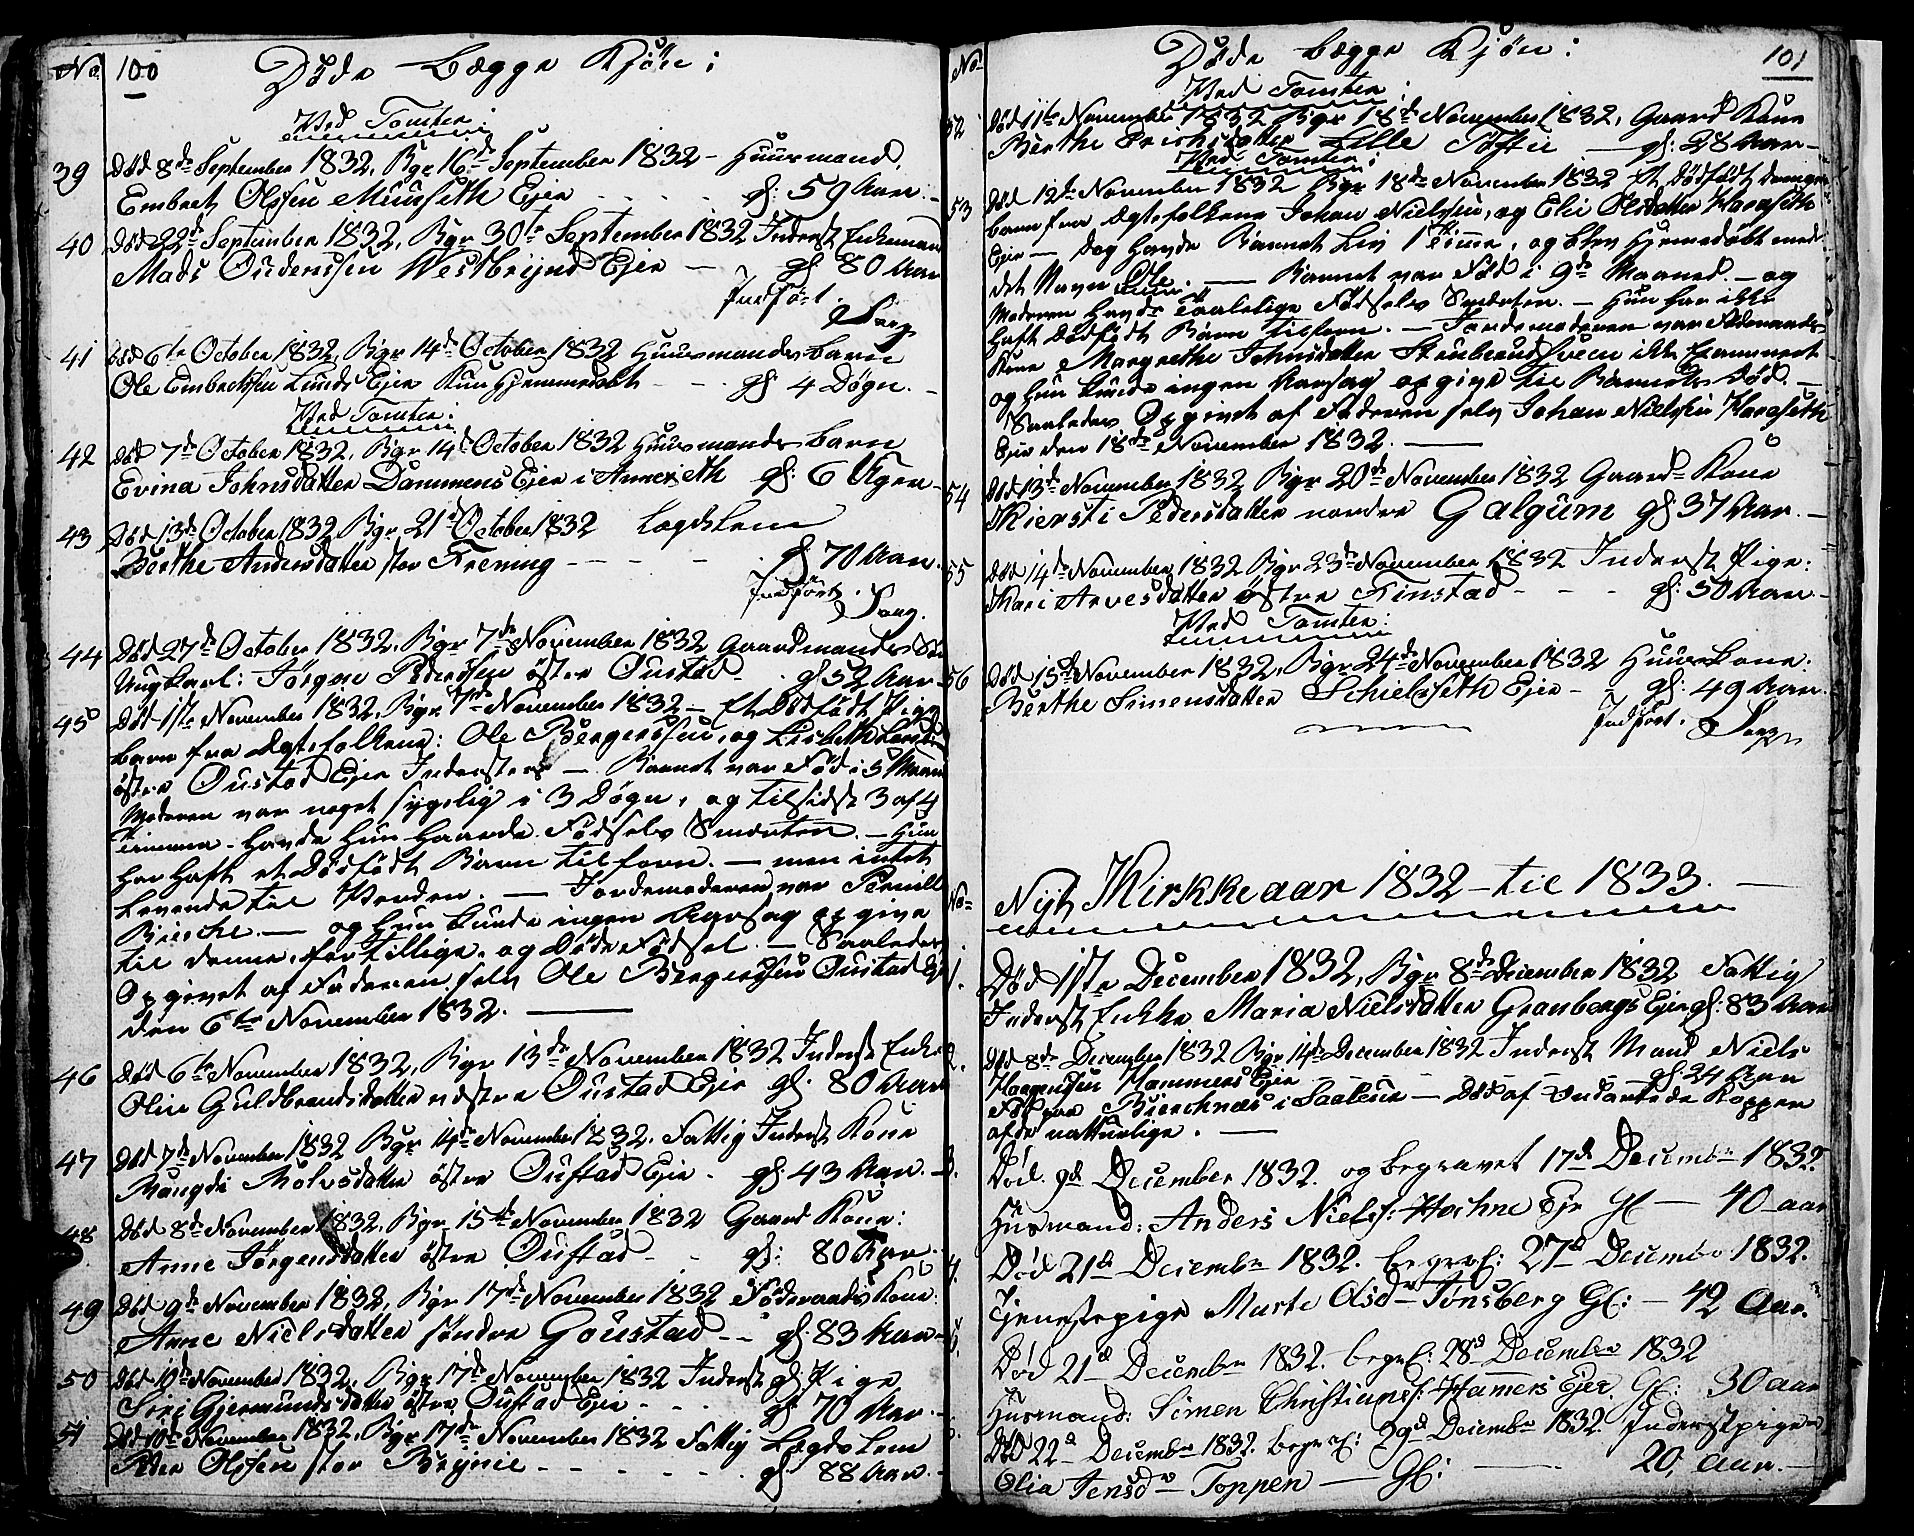 No. 100 Døde begge Kjøn:
Ved Tomter:
39 Død 8de September 1832, Bgr 16de September 1832 – Huusmand,
Embret Olssen Muusseth Ejer - - - - gl: 59 Aar. –
40 Død 22de September 1832, Bgr 30te September 1832 Inderst Enkemand
Mads Oudenssen Westbrynd Ejer – gl 80 Aar
Indført.
41 Død 6te October 1832, Bgr 14de October 1832 Huusmands barn
Ole Embretssen Lunds Ejer Kun Hjemmedøbt - - gl 4 Døgn. –
Ved Tomter:
42 Død 7de October 1832, Bgr 14de October 1832 Huusmands barn
Evina Johnsdatter Dammens Ejer i Annex Eth gl: 6 Uger –
43 Død 13de October 1832, Bgr 21de October 1832 Lægdslem
Berthe Andersdatter stor Frening - - - - - gl 70 Aar
Indført.
44 Død 27de October 1832, Bgr 7de November 1832 Gaardmands Søn
Ungkarl: Jørgen Pederssen østre Oustad - . gl 52 Aar –
45 Død 1ste November 1832, Bgr 7de November 1832 – Et Dødfødt Pige
barn fra Ægtefolkene: Ole Bergerssen, og Lisbeth
østre Oustad Ejer Inderster – Barnet var Fød i 5 Maaned
Moderen var noget sygelig i 3 Døgn, og tilsidst 3 af 4
Timmer – havde Hun Haarde Fødsels Smerter. – Hun
har Haft et Dødfødt Barn tilforn. – men intet
Levende til Verden. – Jordemoderen var Pernille
– og Hun kunde ingen Aarsag opgive
til denne, for tillige, og Døde Fødsel. – Saaledes
Opgivet af Faderen selv Ole Bergerssen Oustad Ejer
den 6te November 1832. –
46 Død 6te November 1832, Bgr 13de November 1832 Inderst Enke
Olia Guldbrandsdatter vestre Oustad Ejer gl. 80 Aar
47 Død 7de November 1832 Bgr 14de November 1832. Fattig Inderst Kone
Rangdi Rolvsdatter østre Oustad Ejer - gl 43 Aar. –
48 Død 8de November 1832, Bgr 15de November 1832 Gaard Kone:
Anne Jørgensdatter østre Oustad - - gl: 80 Aar.
49 Død 9de November 1832, Bgr 17de November 1832 Føderaads Kone:
Anne Nielsdatter søndre Goustad - - gl. 83 Aar –
50 Død 10de November 1832, Bgr 17de November 1832 Inderst gl Pige
Siri Gjermundsdatter østre Oustad Ejer - - - gl 70 Aar. –
51 Død 10de November 1832, Bgr 17de November 1832 Fattig Lægds Lem
Peder Olssen stor Brynie - - - - - - gl 88 Aar. –
No. Døde begge Kjøn: 101
Ved Tomter:
52 Død 11te November 1832 Bgr 18de November 1832, Gaard Kone
Berthe Erichsdatter Lille Toftie – gl: 28 Aar –
Ved Tomter:
53 Død 12te November 1832 Bgr 18de November 1832 Et Dødfødt Drenge
barn fra Ægtefolkene Johan Nielssen, og Elie Olsdatter Haraseth
Ejer – Dog havde Barnet Liv 1 Timme, og blev Hjemmedøbt med
det Navn Ole. – Barnet var Fød i 9de Maaned. – og
Moderen havde taalelige Fødsels Smerter. – Hun har ikke
haft Dødfødt Barn tilforn. – Jordemoderen var Føderaads
Kone Margrethe Johnsdatter ikke Examineret
og Hun kunde ingen Aarsag opgive til Barnets Død. –
Saaledes Opgivet af Faderen selv Johan Nielssen Haraseth
Ejer den 18de November 1832. –
54 Død 13de November 1832 Bgr 20de November 1832 Gaard Kone
Kiersti Pedersdatter nordre Galgum gl 37 Aar. –
55 Død 14de November 1832 Bgr 23de November 1832 Inderst Pige:
Mari Arvesdatter østre Finstad - - - gl: 50 Aar –
Ved Tomter:
56 Død 15de November 1832, Bgr 24de November 1832 Huus Kone.
Berthe Simensdatter Schielsseth Ejer - - gl: 49 Aar.
Indført.
No.
Nyt Kirkkeaar 1832 – til 1833. –
1. Død 1ste December 1832, Bgr 8de December 1832 Fattig
Inderst Enke Maria Nielsdatter Granbergs Ejer gl: 83 Aar
2. Død 8de December 1832 Bgr 14de December 1832 Inderst Mand Niels
Haagenssen Hammers Ejer - - - - - gl: 24 Aar
Fød paa Bierchnæs i Saaleur – Død af vudartede Kopper
af de naturlige. –
3. Død. 9de December 1832. og begravet 17de December 1832.
Husmand: Anders Niels: Hochne Ejr Gl – 40 aar
4. Død 21de December 1832. begr: 27de December 1832.
Tjenestepige Marte Olsdr Tonsberg Gl: – 42 Aar.
5. Død 21de December 1832. begr: 28de December 1832
Husmand: Simen Christians: Hamers Ejer Gl: 30 aar
Død 22de December 1832. begr: 29de December 1832. Inderstpigen
Elia Jensdr – Toppen – Gl: – 20, Aar. –